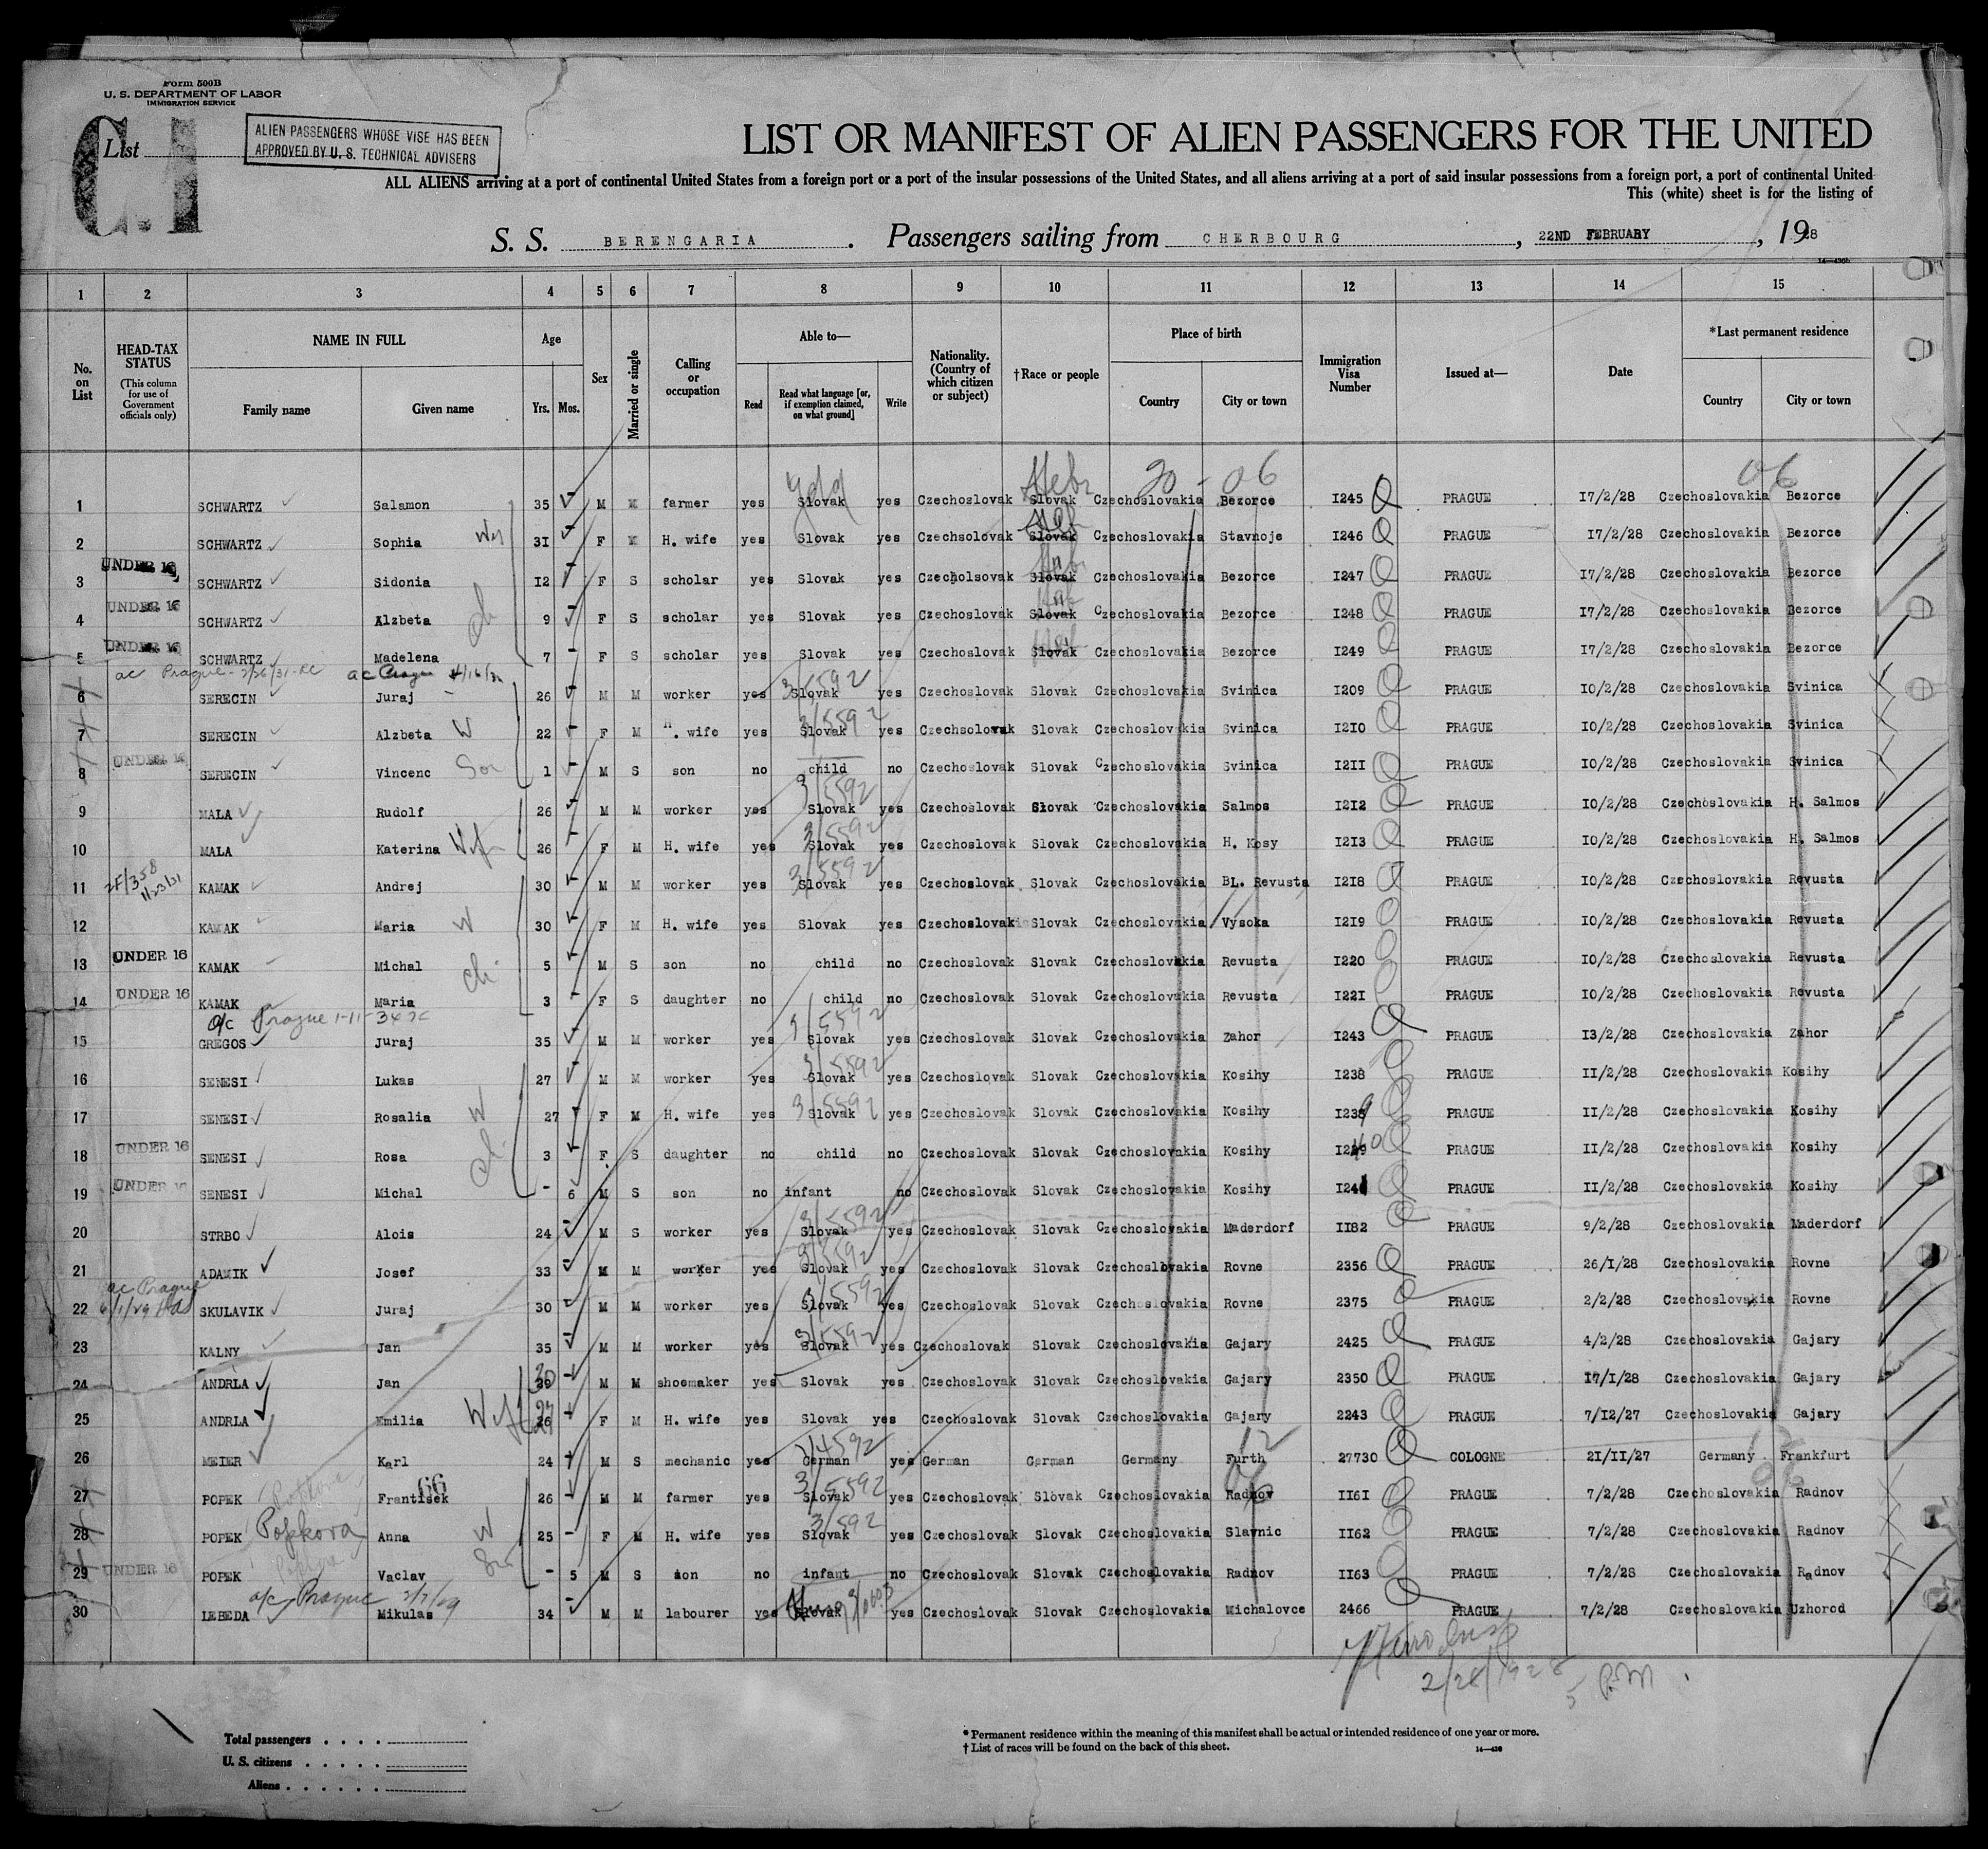 Form 500B
U. S. DEPARTMENT OF LABOR
IMMIGRATION SERVICE
C.I
List
ALIEN PASSENGERS WHOSE VISE HAS BEEN
APPROVED BY U. S. TECHNICAL ADVISERS
LIST OR MANIFEST OF ALIEN PASSENGERS FOR THE UNITED
ALL ALIENS arriving at a port of continental United States from a foreign port or a port of the insular possessions of the United States, and all aliens arriving at a port of said insular possessions from a foreign port, a port of continental United
This (white) sheet is for the listing of
S. S. BERENGARIA . Passengers sailing from CHERBOURG , 22ND FEBRUARY , 1928
14—436b
1 2 3 4 5 6 7 8 9 10 11 12 13 14 15
No. on List
HEAD-TAX STATUS
(This column for use of Government officials only)
NAME IN FULL
Family name Given name
Age
Yrs. Mos.
Sex
Married or single
Calling or occupation
Able to—
Read Read what language [or, if exemption claimed, on what ground] Write
Nationality. (Country of which citizen or subject)
†Race or people
Place of birth
Country City or town
Immigration Visa Number
Issued at—
Date
*Last permanent residence
Country City or town
Hebr 20 - 06 06
1 SCHWARTZ Salamon 35 M M farmer yes Slovak yes Czechoslovak Slovak Czechoslovakia Bezorce I245 PRAGUE I7/2/28 Czechoslovakia Bezorce
2 SCHWARTZ Sophia 3I F M H. wife yes Slovak yes Czechsolovak Slovak Czechoslovakia Stavnoje I246 PRAGUE I7/2/28 Czechoslovakia Bezorce
UNDER 16
3 SCHWARTZ Sidonia I2 F S scholar yes Slovak yes Czecholsovak Slovak Czechoslovakia Bezorce I247 PRAGUE I7/2/28 Czechoslovakia Bezorce
UNDER 16
4 SCHWARTZ Alzbeta ch 9 F S scholar yes Slovak yes Czechoslovak Slovak Czechoslovakia Bezorce I248 PRAGUE I7/2/28 Czechoslovakia Bezorce
UNDER 16
5 SCHWARTZ Madelena 7 F S scholar yes Slovak yes Czechoslovak Slovak Czechoslovakia Bezorce I249 PRAGUE I7/2/28 Czechoslovakia Bezorce
ac Prague ac Prague
6 SERECIN Juraj 26 M M worker yes Slovak yes Czechoslovak Slovak Czechoslovakia Svinica I209 PRAGUE I0/2/28 Czechoslovakia Svinica
3/5592
7 SERECIN Alzbeta W 22 F M H. wife yes Slovak yes Czechsolovak Slovak Czechoslovakia Svinica I2I0 PRAGUE I0/2/28 Czechoslovakia Svinica
UNDER 16
8 SERECIN Vincenc Son 1 M S son no child no Czechoslovak Slovak Czechoslovakia Svinica I2II PRAGUE I0/2/28 Czechoslovakia Svinica
3/5592
9 MALA Rudolf 26 M M worker yes Slovak yes Czechoslovak Slovak Czechoslovakia Salmos I2I2 PRAGUE I0/2/28 Czechoslovakia H. Salmos
3/5592
10 MALA Katerina Wife 26 F M H. wife yes Slovak yes Czechoslovak Slovak Czechoslovakia H. Kosy I2I3 PRAGUE I0/2/28 Czechoslovakia H. Salmos
3/5592
11 KAMAK Andrej 30 M M worker yes Slovak yes Czechoslovak Slovak Czechoslovakia BL. Revusta I2I8 PRAGUE I0/2/28 Czechoslovakia Revusta
12 KAMAK Maria W 30 F M H. wife yes Slovak yes Czechoslovak Slovak Czechoslovakia Vysoka I2I9 PRAGUE I0/2/28 Czechoslovakia Revusta
UNDER 16
13 KAMAK Michal ch 5 M S son no child no Czechoslovak Slovak Czechoslovakia Revusta I220 PRAGUE I0/2/28 Czechoslovakia Revusta
UNDER 16
14 KAMAK Maria 3 F S daughter no child no Czechoslovak Slovak Czechoslovakia Revusta I22I PRAGUE I0/2/28 Czechoslovakia Revusta
a/c Prague 3/5592
15 GREGOS Juraj 35 M M worker yes Slovak yes Czechoslovak Slovak Czechoslovakia Zahor I243 PRAGUE I3/2/28 Czechoslovakia Zahor
3/5592
16 SENESI Lukas 27 M M worker yes Slovak yes Czechoslovak Slovak Czechoslovakia Kosihy I238 PRAGUE II/2/28 Czechoslovakia Kosihy
3/5592
17 SENESI Rosalia W 27 F M H. wife yes Slovak yes Czechoslovak Slovak Czechoslovakia Kosihy I239 PRAGUE II/2/28 Czechoslovakia Kosihy
UNDER 16
18 SENESI Rosa ch 3 F S daughter no child no Czechoslovak Slovak Czechoslovakia Kosihy I240 PRAGUE II/2/28 Czechoslovakia Kosihy
UNDER 16
19 SENESI Michal - 6 M S son no infant no Czechoslovak Slovak Czechoslovakia Kosihy I241 PRAGUE II/2/28 Czechoslovakia Kosihy
3/5592
20 STRBO Alois 24 M S worker yes Slovak yes Czechoslovak Slovak Czechoslovakia Maderdorf II82 PRAGUE 9/2/28 Czechoslovakia Maderdorf
3/5592
21 ADAMIK Josef 33 M M worker yes Slovak yes Czechoslovak Slovak Czechoslovakia Rovne 2356 PRAGUE 26/I/28 Czechoslovakia Rovne
ac Prague 3/5592
22 SKULAVIK Juraj 30 M M worker yes Slovak yes Czechoslovak Slovak Czechoslovakia Rovne 2375 PRAGUE 2/2/28 Czechoslovakia Rovne
3/5592
23 KALNY Jan 35 M M worker yes Slovak yes Czechoslovak Slovak Czechoslovakia Gajary 2425 PRAGUE 4/2/28 Czechoslovakia Gajary
24 ANDRLA Jan 30 M M shoemaker yes Slovak yes Czechoslovak Slovak Czechoslovakia Gajary 2350 PRAGUE I7/I/28 Czechoslovakia Gajary
25 ANDRLA Emilia Wife 26 F M H. wife yes Slovak yes Czechoslovak Slovak Czechoslovakia Gajary 2243 PRAGUE 7/I2/27 Czechoslovakia Gajary
12
26 MEIER Karl 24 M S mechanic yes German yes German German Germany Furth 27730 COLOGNE 2I/II/27 Germany Frankfurt
66 3/5592 06
27 POPEK Frantisek 26 M M farmer yes Slovak yes Czechoslovak Slovak Czechoslovakia Radnov II6I PRAGUE 7/2/28 Czechoslovakia Radnov
3/592
28 POPEK Popkova Anna W 25 - F M H. wife yes Slovak yes Czechoslovak Slovak Czechoslovakia Slavnic II62 PRAGUE 7/2/28 Czechoslovakia Radnov
29 UNDER 16 POPEK Vaclav Son - 5 M S son no infant no Czechoslovak Slovak Czechoslovakia Radnov II63 PRAGUE 7/2/28 Czechoslovakia Radnov
a/c Prague
30 LEBEDA Mikulas 34 M M labourer yes Slovak yes Czechoslovak Slovak Czechoslovakia Michalovce 2466 PRAGUE 7/2/28 Czechoslovakia Uzhorod
2/28/1928
5 P.M.
Total passengers
U. S. citizens
Aliens
* Permanent residence within the meaning of this manifest shall be actual or intended residence of one year or more.
† List of races will be found on the back of this sheet.